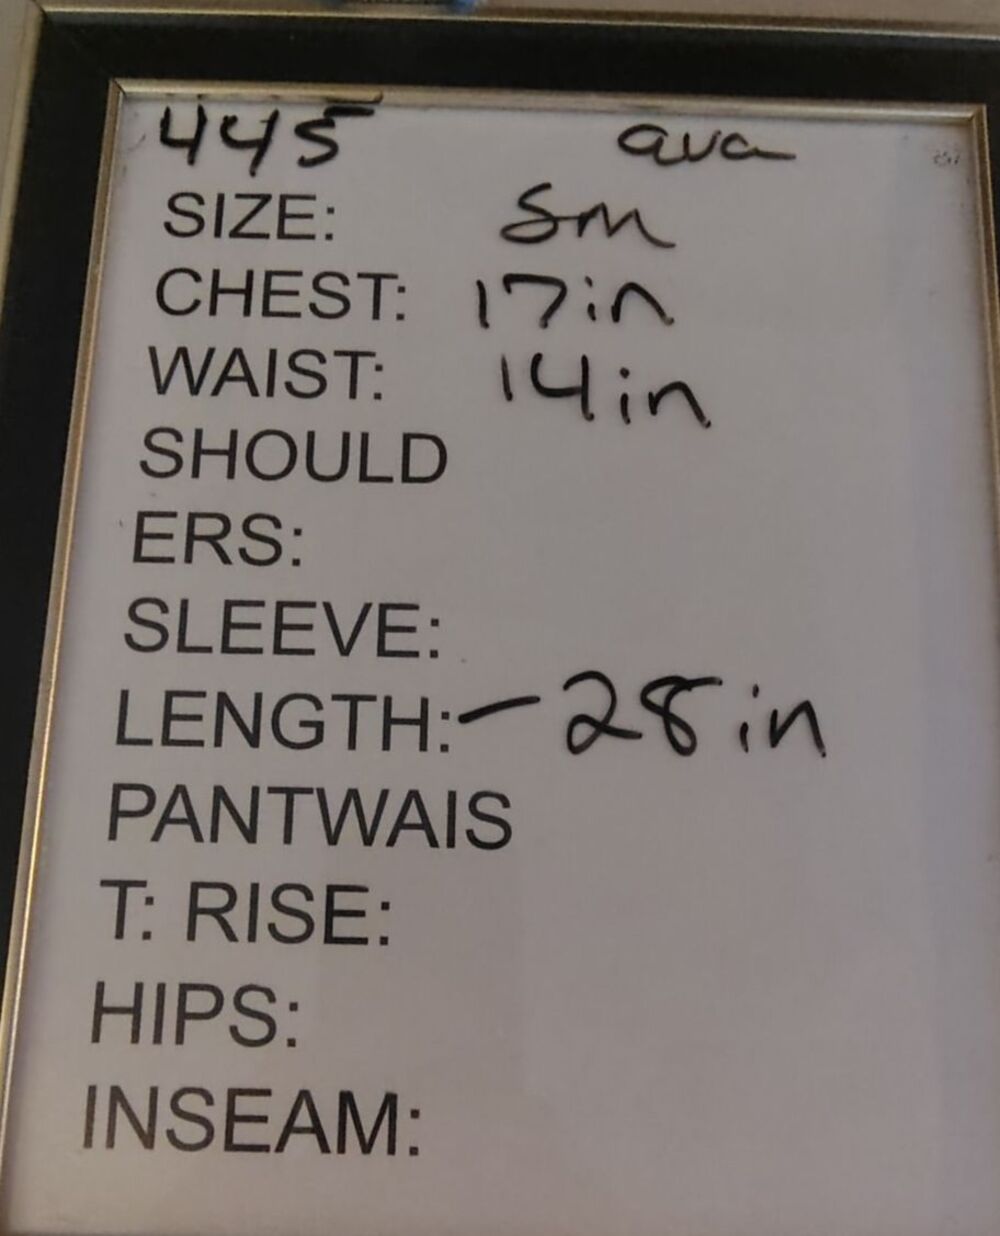 445 ava
SIZE: Sm
CHEST: 17in
WAIST: 14in
SHOULD
ERS:
SLEEVE:
LENGTH:- 28 in
PANTWAIS
T: RISE:
HIPS:
INSEAM: